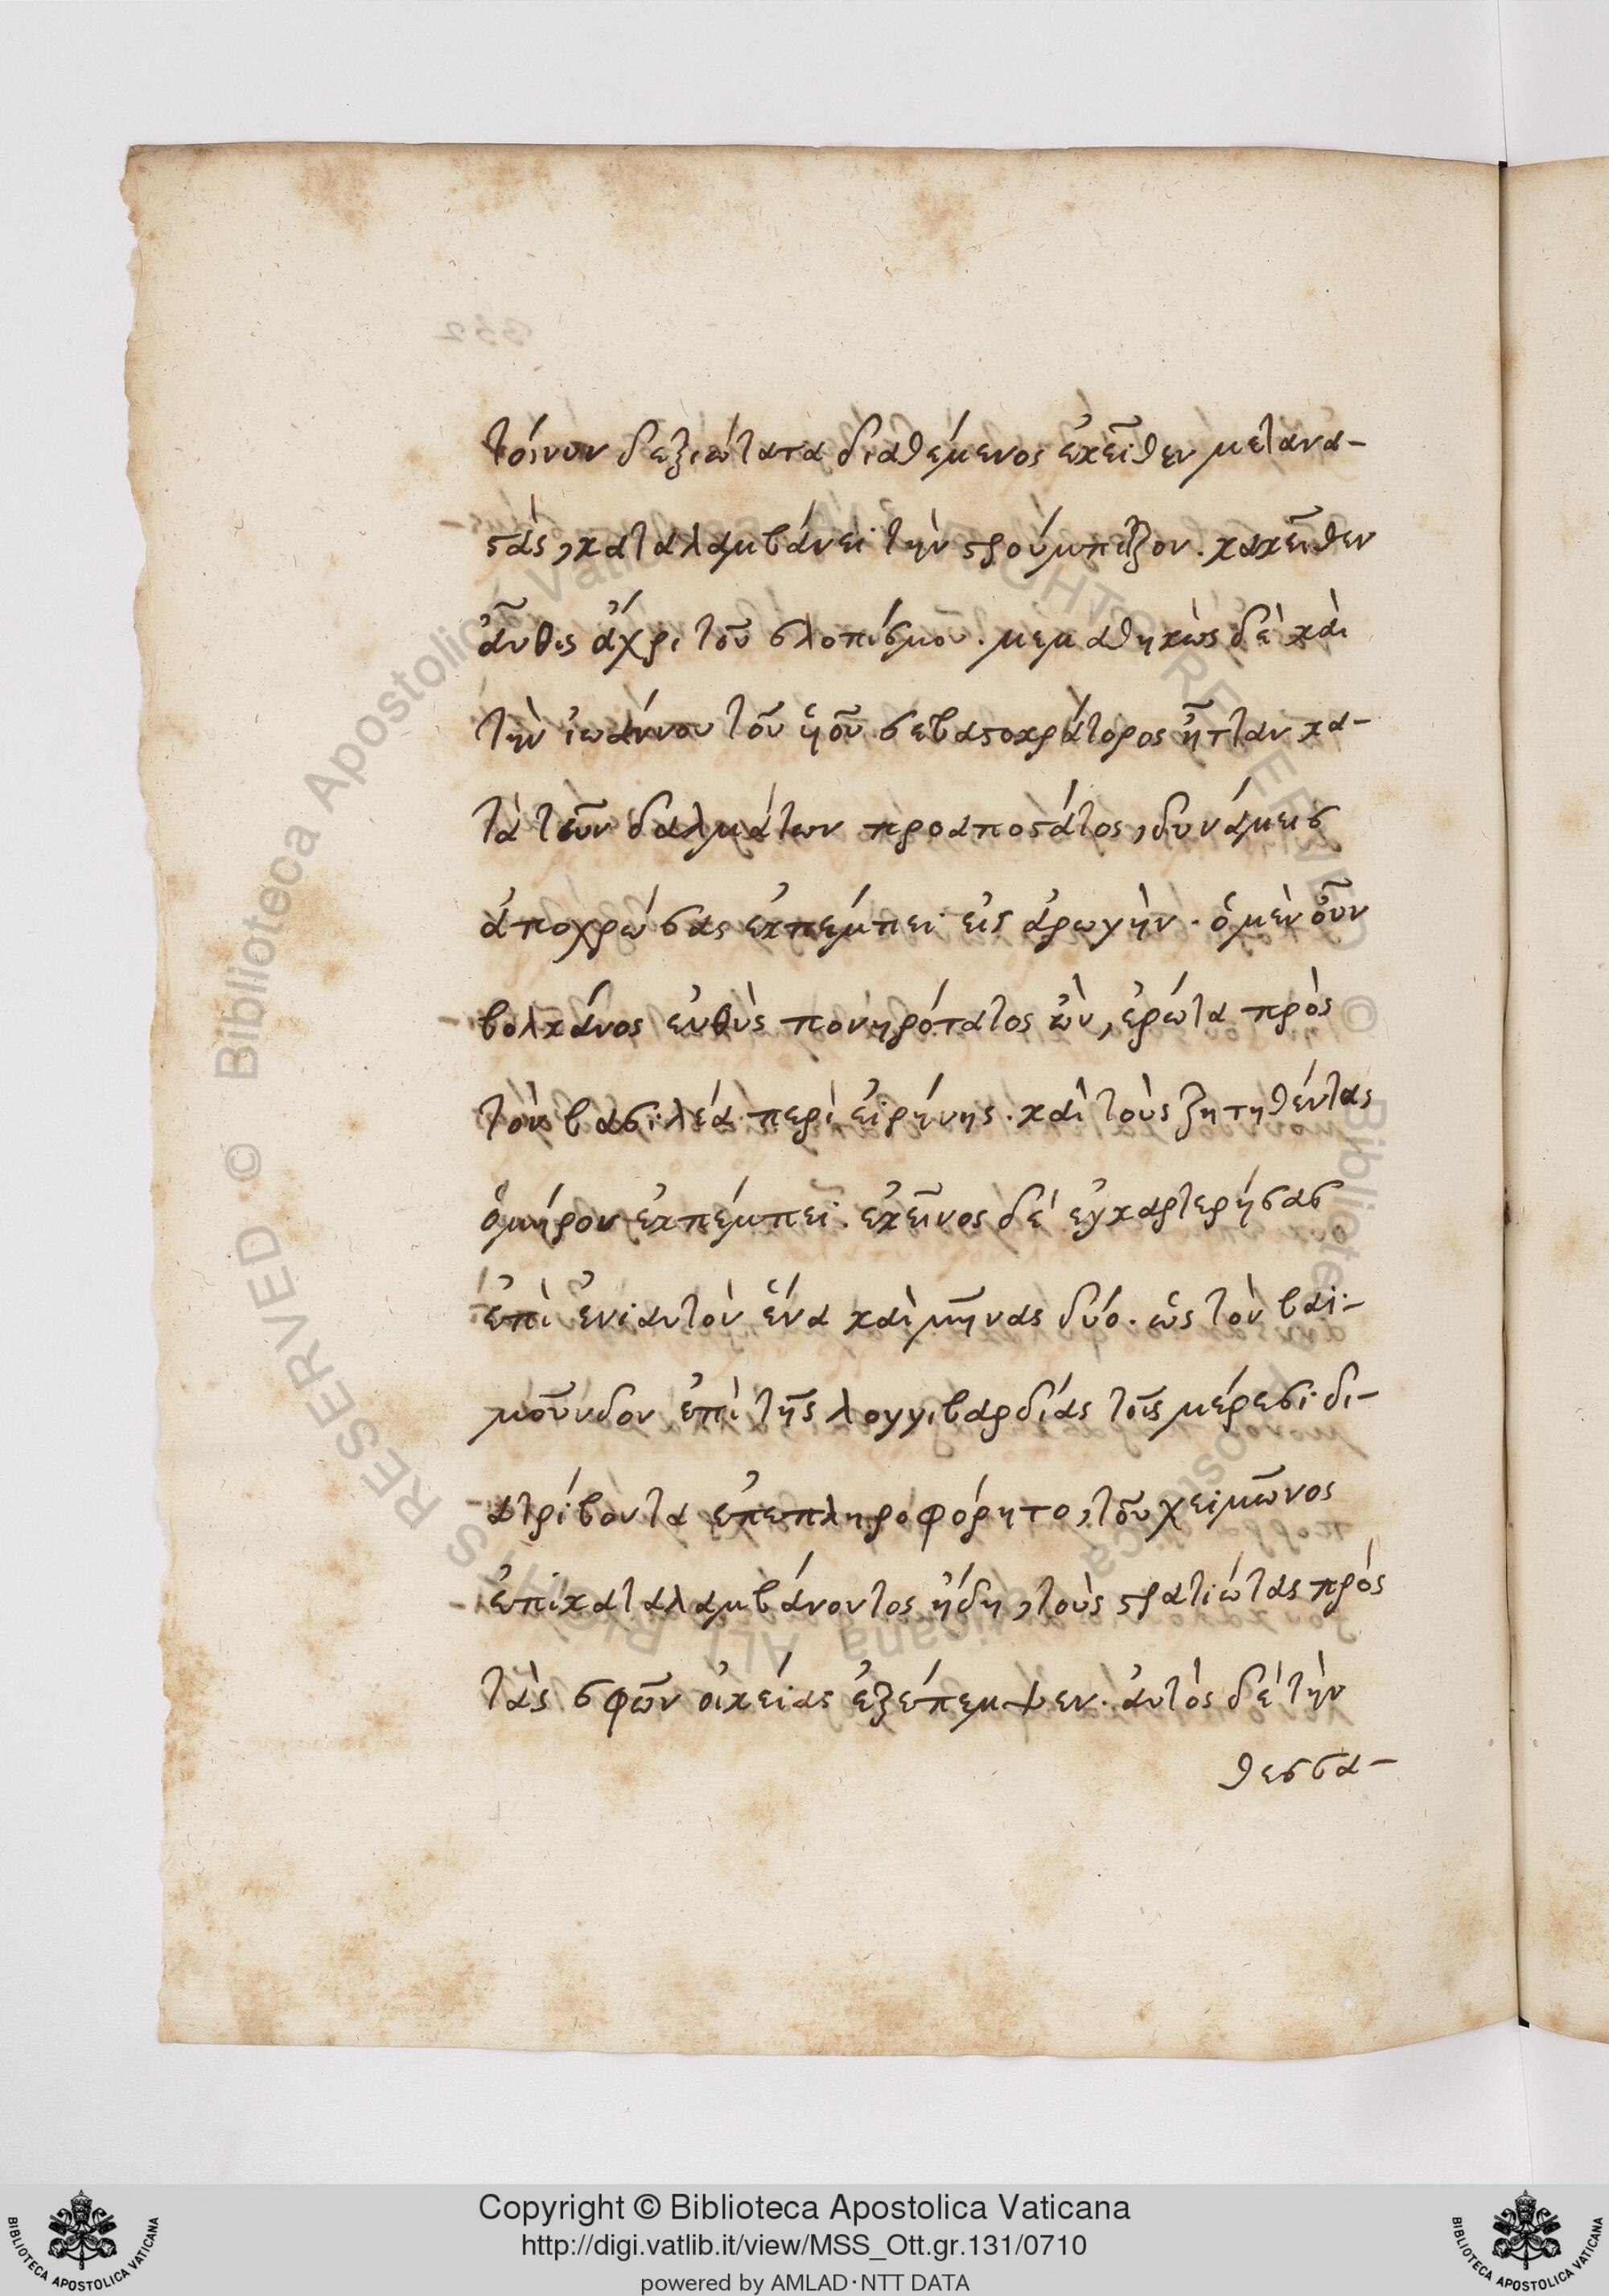 τοίνυν δεξιώτατα διαθέμενος ἐκεῖθεν μετανα-
ςὰς, καταλαμβάνει τὴν ςρούμπιτζον. κακεῖθεν
ἆυθις ἄχρι τοῦ σλοπίσμου. μεμαθηκὼς δὲ καὶ
τὴν ἰωάννου τοῦ ὑοῦ σεβαςοκράτορος ἧτταν κα-
τὰ τῶν δαλμάτων προαποςάτος, δυνάμεις
ἀποχρώσας ἐκπέμπει εἰς ἀρωγὴν. ὁ μὲν οὖν
βολκάνος εὐθὺς πονηρότατος ὢν, ἐρώτα πρὸς
τὸν βασιλέα περὶ εἰρήνης. καὶ τοὺς ζητηθέντας
ὁμήρον ἐκπέμπει. ἐκεῖνος δὲ ἐγκαρτερήσας
ἐπὶ ἐνιαυτὸν ἕνα καὶ μῆνας δύο. ὡς τὸν βαϊ-
μοῦνδον ἐπὶ τῆς λογγιβαρδίας τοῖς μέρεσι δι-
ατρίβοντα ἐπεπληροφόρητο, τοῦ χειμῶνος
ἐπικαταλαμβάνοντος ἤδη, τοὺς ςρατιώτας πρὸς
τὰς σφῶν οἰκείας ἐξέπεμψεν. ἀυτὸς δὲ τὴν
θεσσα-
332
Copyright © Biblioteca Apostolica Vaticana
http://digi.vatlib.it/view/MSS_Ott.gr.131/0710
powered by AMLAD·NTT DATA
BIBLIOTECA APOSTOLICA VATICANA
BIBLIOTECA APOSTOLICA VATICANA
© Biblioteca Apostolica Vaticana ALL RIGHTS RESERVED © Biblioteca Apostolica Vaticana ALL RIGHTS RESERVED